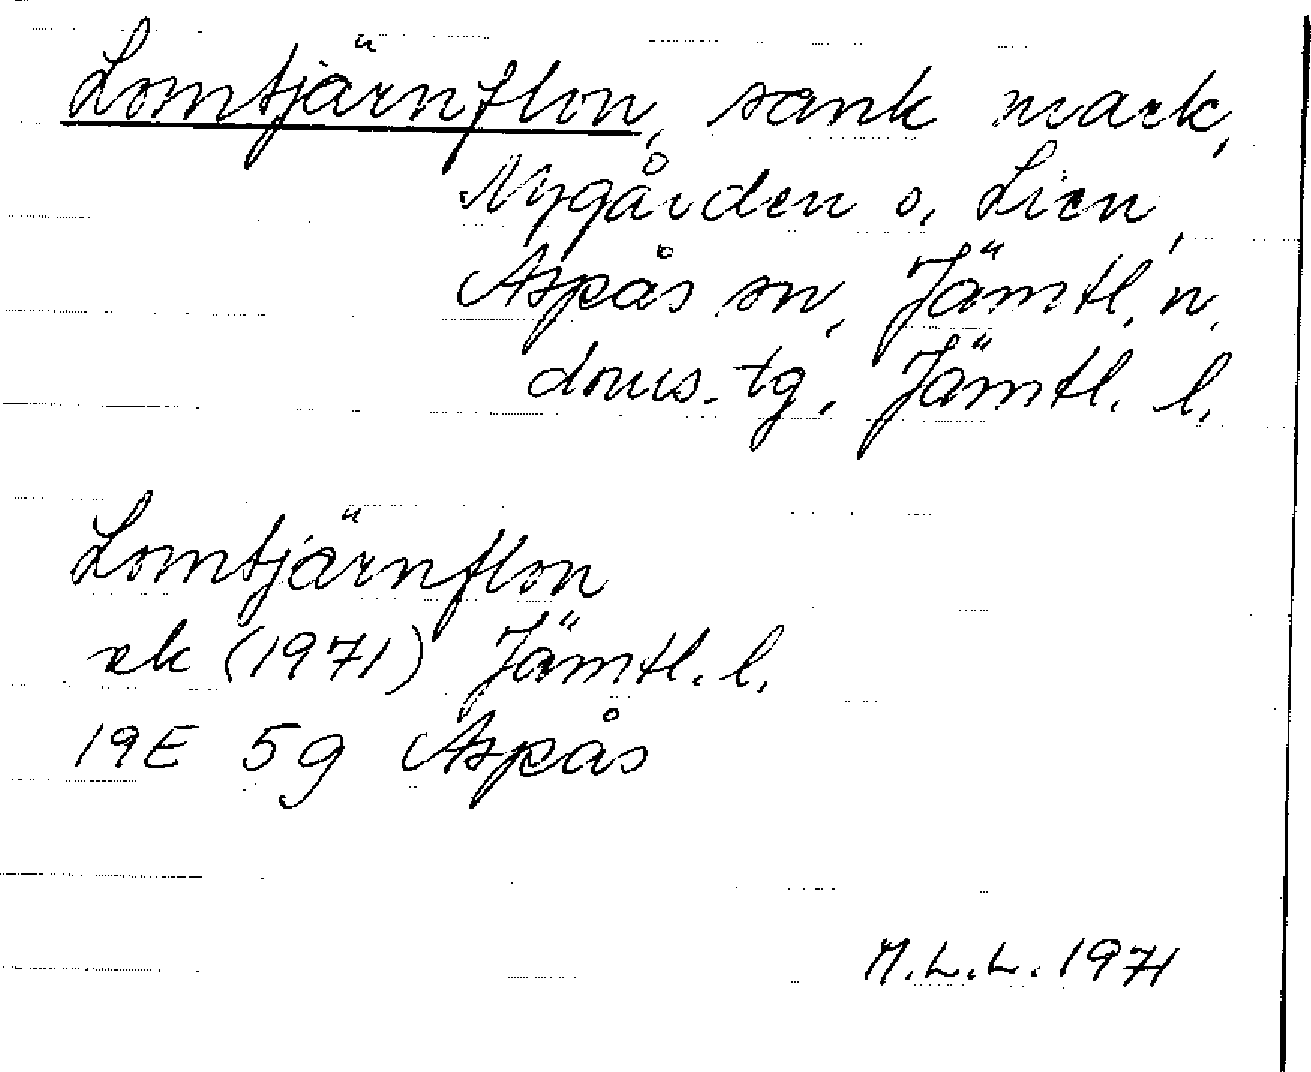 Lomtjärnflon, sank mark,
Nygården o. Lien,
Aspås sn, Jämtl. n.
doms. tg, Jämtl. l.
Lomtjärnflon
ek (1971) Jämtl. l.
19E 5g Aspås
M.L.L. 1971